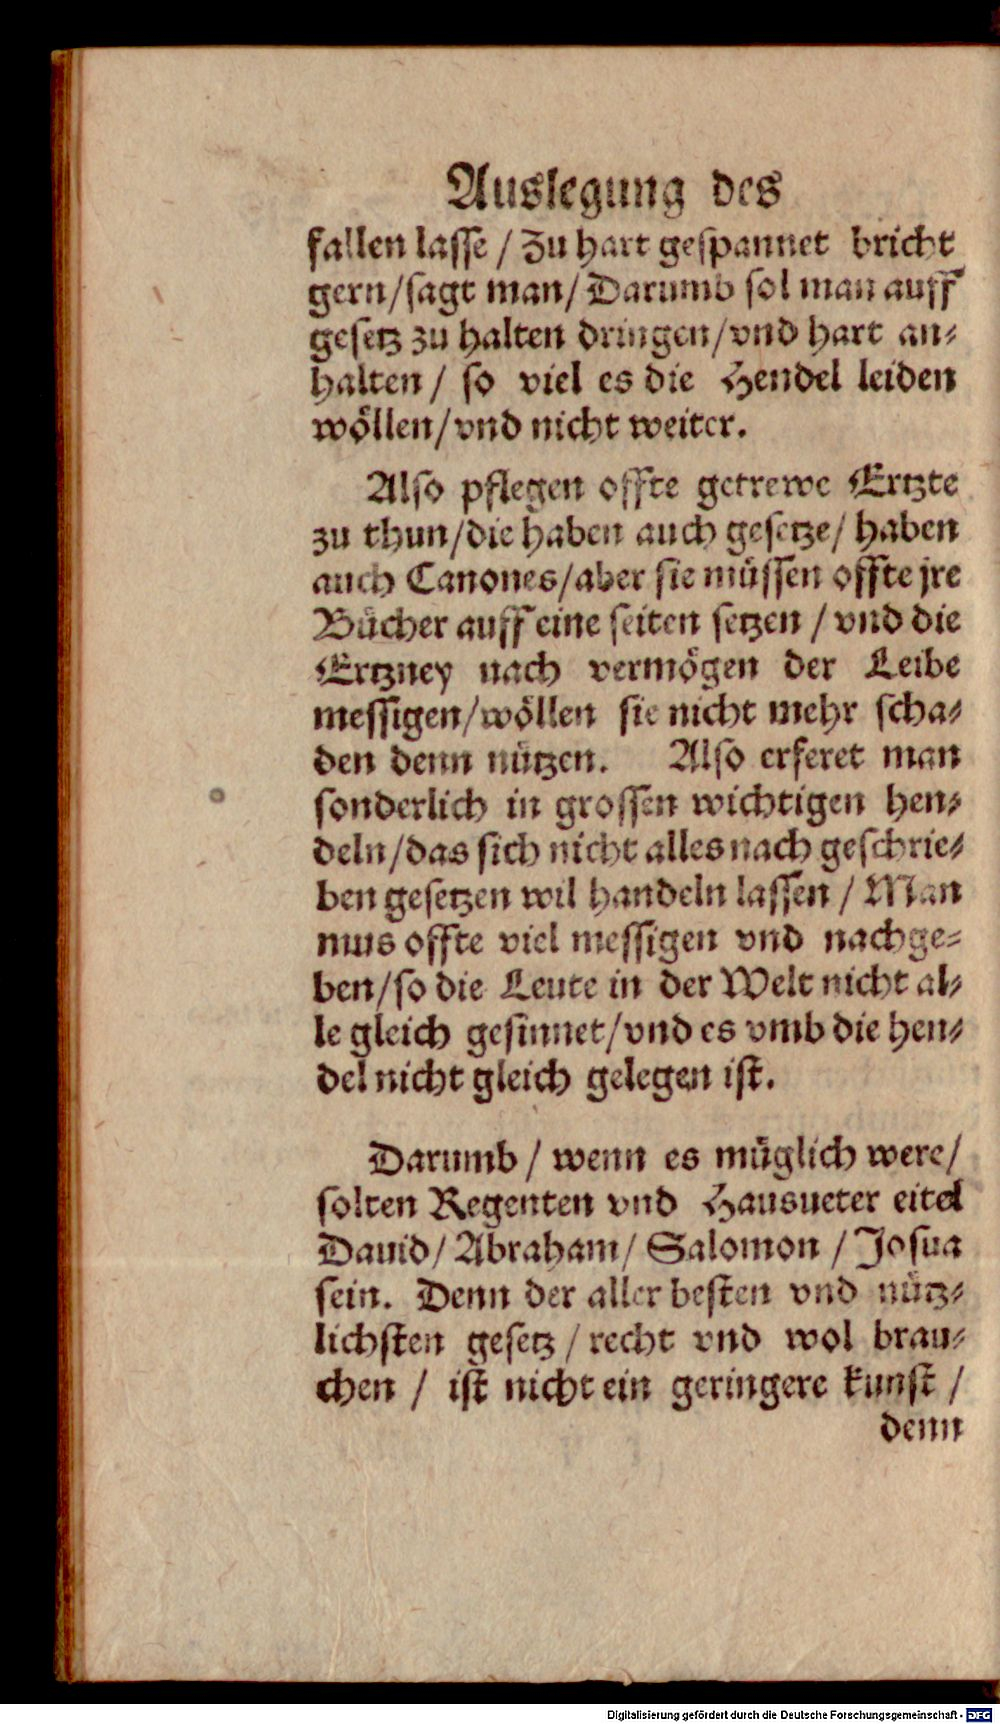 Auslegung des
fallen lasse / Zu hart gespannet bricht
gern/sagt man/ Darumb sol man auff
gesetz zu halten dringen/vnd hart an⸗
halten / so viel es die Hendel leiden
wöllen/vnd nicht weiter.
Also pflegen offte getrewe Ertzte
zu thun/die haben auch gesetze/ haben
auch Canones/aber sie müssen offte jre
Bücher auff eine seiten setzen / vnd die
Ertzney nach vermögen der Leibe
messigen/wöllen sie nicht mehr scha⸗
den denn nützen. Also erferet man
sonderlich in grossen wichtigen hen⸗
deln/das sich nicht alles nach geschrie⸗
ben gesetzen wil handeln lassen / Man
mus offte viel messigen vnd nachge⸗
ben/so die Leute in der Welt nicht al⸗
le gleich gesinnet/vnd es vmb die hen⸗
del nicht gleich gelegen ist.
Darumb / wenn es müglich were/
solten Regenten vnd Hausueter eitel
Dauid/ Abraham/ Salomon / Josua
sein. Denn der aller besten vnd nütz⸗
lichsten gesetz / recht vnd wol brau⸗
chen / ist nicht ein geringere kunst /
denn
Digitalisierung gefördert durch die Deutsche Forschungsgemeinschaft - DFG